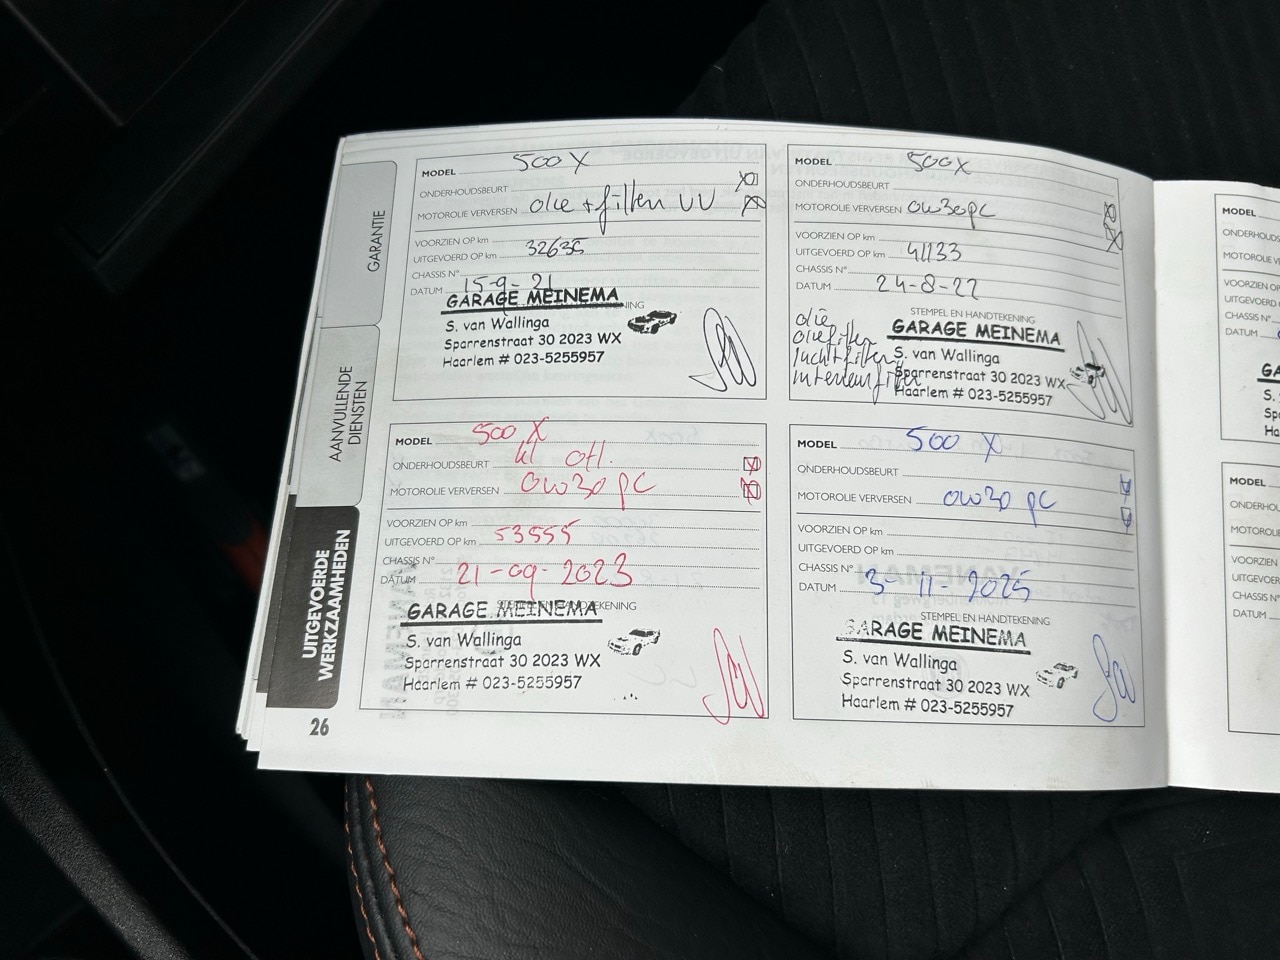 GARANTIE
AANVULLENDE
DIENSTEN
UITGEVOERDE
WERKZAAMHEDEN
26
MODEL 500 X
ONDERHOUDSBEURT
MOTOROLIE VERVERSEN olie + filter VV
VOORZIEN OP km
UITGEVOERD OP km 32635
CHASSIS N°
DATUM 15-9-21
GARAGE MEINEMA
S. van Wallinga
Sparrenstraat 30 2023 WX
Haarlem # 023-5255957
MODEL 500X
ONDERHOUDSBEURT
MOTOROLIE VERVERSEN 0W30pc
VOORZIEN OP km
UITGEVOERD OP km 41133
CHASSIS N°
DATUM 24-8-22
STEMPEL EN HANDTEKENING
olie
oliefilter
luchtfilter
interieurfilter
GARAGE MEINEMA
S. van Wallinga
Sparrenstraat 30 2023 WX
Haarlem # 023-5255957
MODEL 500 X
ONDERHOUDSBEURT kl
MOTOROLIE VERVERSEN 0W30 pc
VOORZIEN OP km
UITGEVOERD OP km 53555
CHASSIS N°
DATUM 21-09-2023
STEMPEL EN HANDTEKENING
GARAGE MEINEMA
S. van Wallinga
Sparrenstraat 30 2023 WX
Haarlem # 023-5255957
MODEL 500 X
ONDERHOUDSBEURT
MOTOROLIE VERVERSEN 0W30 pc
VOORZIEN OP km
UITGEVOERD OP km
CHASSIS N°
DATUM 3-11-2025
STEMPEL EN HANDTEKENING
GARAGE MEINEMA
S. van Wallinga
Sparrenstraat 30 2023 WX
Haarlem # 023-5255957
MODEL
VOORZIEN OP
CHASSIS N°
DATUM
S.
MODEL
VOORZIEN OP
CHASSIS N°
DATUM